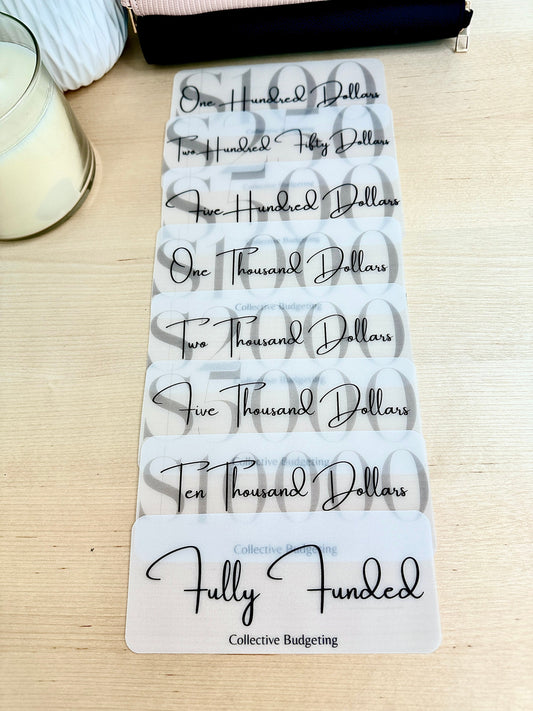 $100
One Hundred Dollars
$250
Two Hundred Fifty Dollars
$500
Five Hundred Dollars
$1000
One Thousand Dollars
Collective Budgeting
$2000
Two Thousand Dollars
$5000
Five Thousand Dollars
Collective Budgeting
$10000
Ten Thousand Dollars
Collective Budgeting
Fully Funded
Collective Budgeting